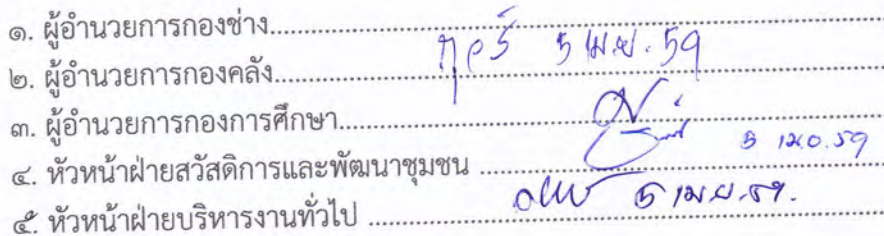 ๑. ผู้อำนวยการกองช่าง
๒. ผู้อำนวยการกองคลัง 5 เม.ย. 59
๓. ผู้อำนวยการกองการศึกษา
๔. หัวหน้าฝ่ายสวัสดิการและพัฒนาชุมชน 5 เม.ย. 59
๕. หัวหน้าฝ่ายบริหารงานทั่วไป 5 เม.ย. 59.